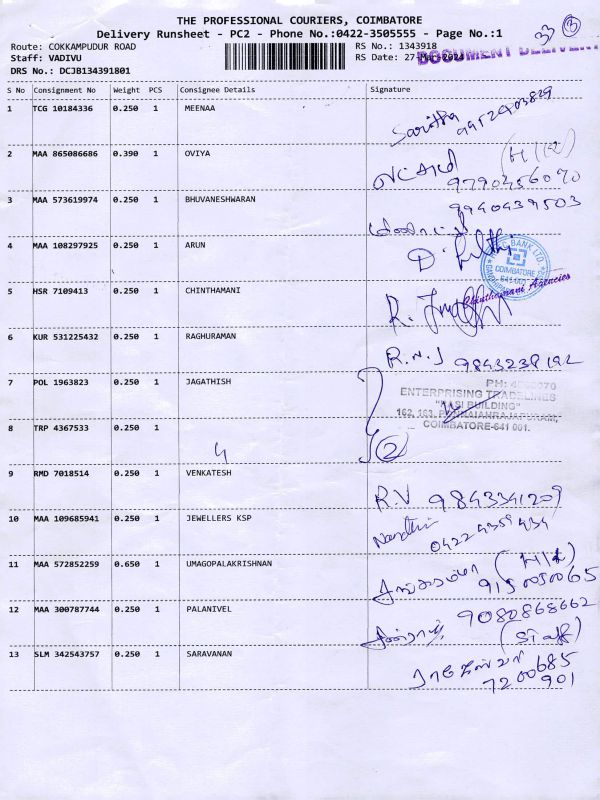 THE PROFESSIONAL COURIERS, COIMBATORE
Delivery Runsheet - PC2 - Phone No.:0422-3505555 - Page No.:1
Route: COKKAMPUDUR ROAD
RS No.: 1343918
Staff: VADIVU
RS Date: 27-Mar-2024
DOCUMENT DELIVERY
DRS No.: DCJB134391801
S No Consignment No Weight PCS Consignee Details Signature
1 TCG 10184336 0.250 1 MEENAA
Saritha
2 MAA 865086686 0.390 1 OVIYA
(H/12)
9790456070
3 MAA 573619974 0.250 1 BHUVANESHWARAN
9940439503
4 MAA 108297925 0.250 1 ARUN
BANK LTD.
COIMBATORE
641 001
5 HSR 7109413 0.250 1 CHINTHAMANI
Chinthamani Agencies
6 KUR 531225432 0.250 1 RAGHURAMAN
R.N.J 9843238192
7 POL 1963823 0.250 1 JAGATHISH
ENTERPRISING TRADELINES
"KASI BUILDING"
COIMBATORE-641 001.
8 TRP 4367533 0.250 1
4
2
9 RMD 7018514 0.250 1 VENKATESH
R.V 9843341209
10 MAA 109685941 0.250 1 JEWELLERS KSP
Nandhi
0422 4359 434
11 MAA 572852259 0.650 1 UMAGOPALAKRISHNAN
12 MAA 300787744 0.250 1 PALANIVEL
9080868662
(Staff)
13 SLM 342543757 0.250 1 SARAVANAN
685
7200901